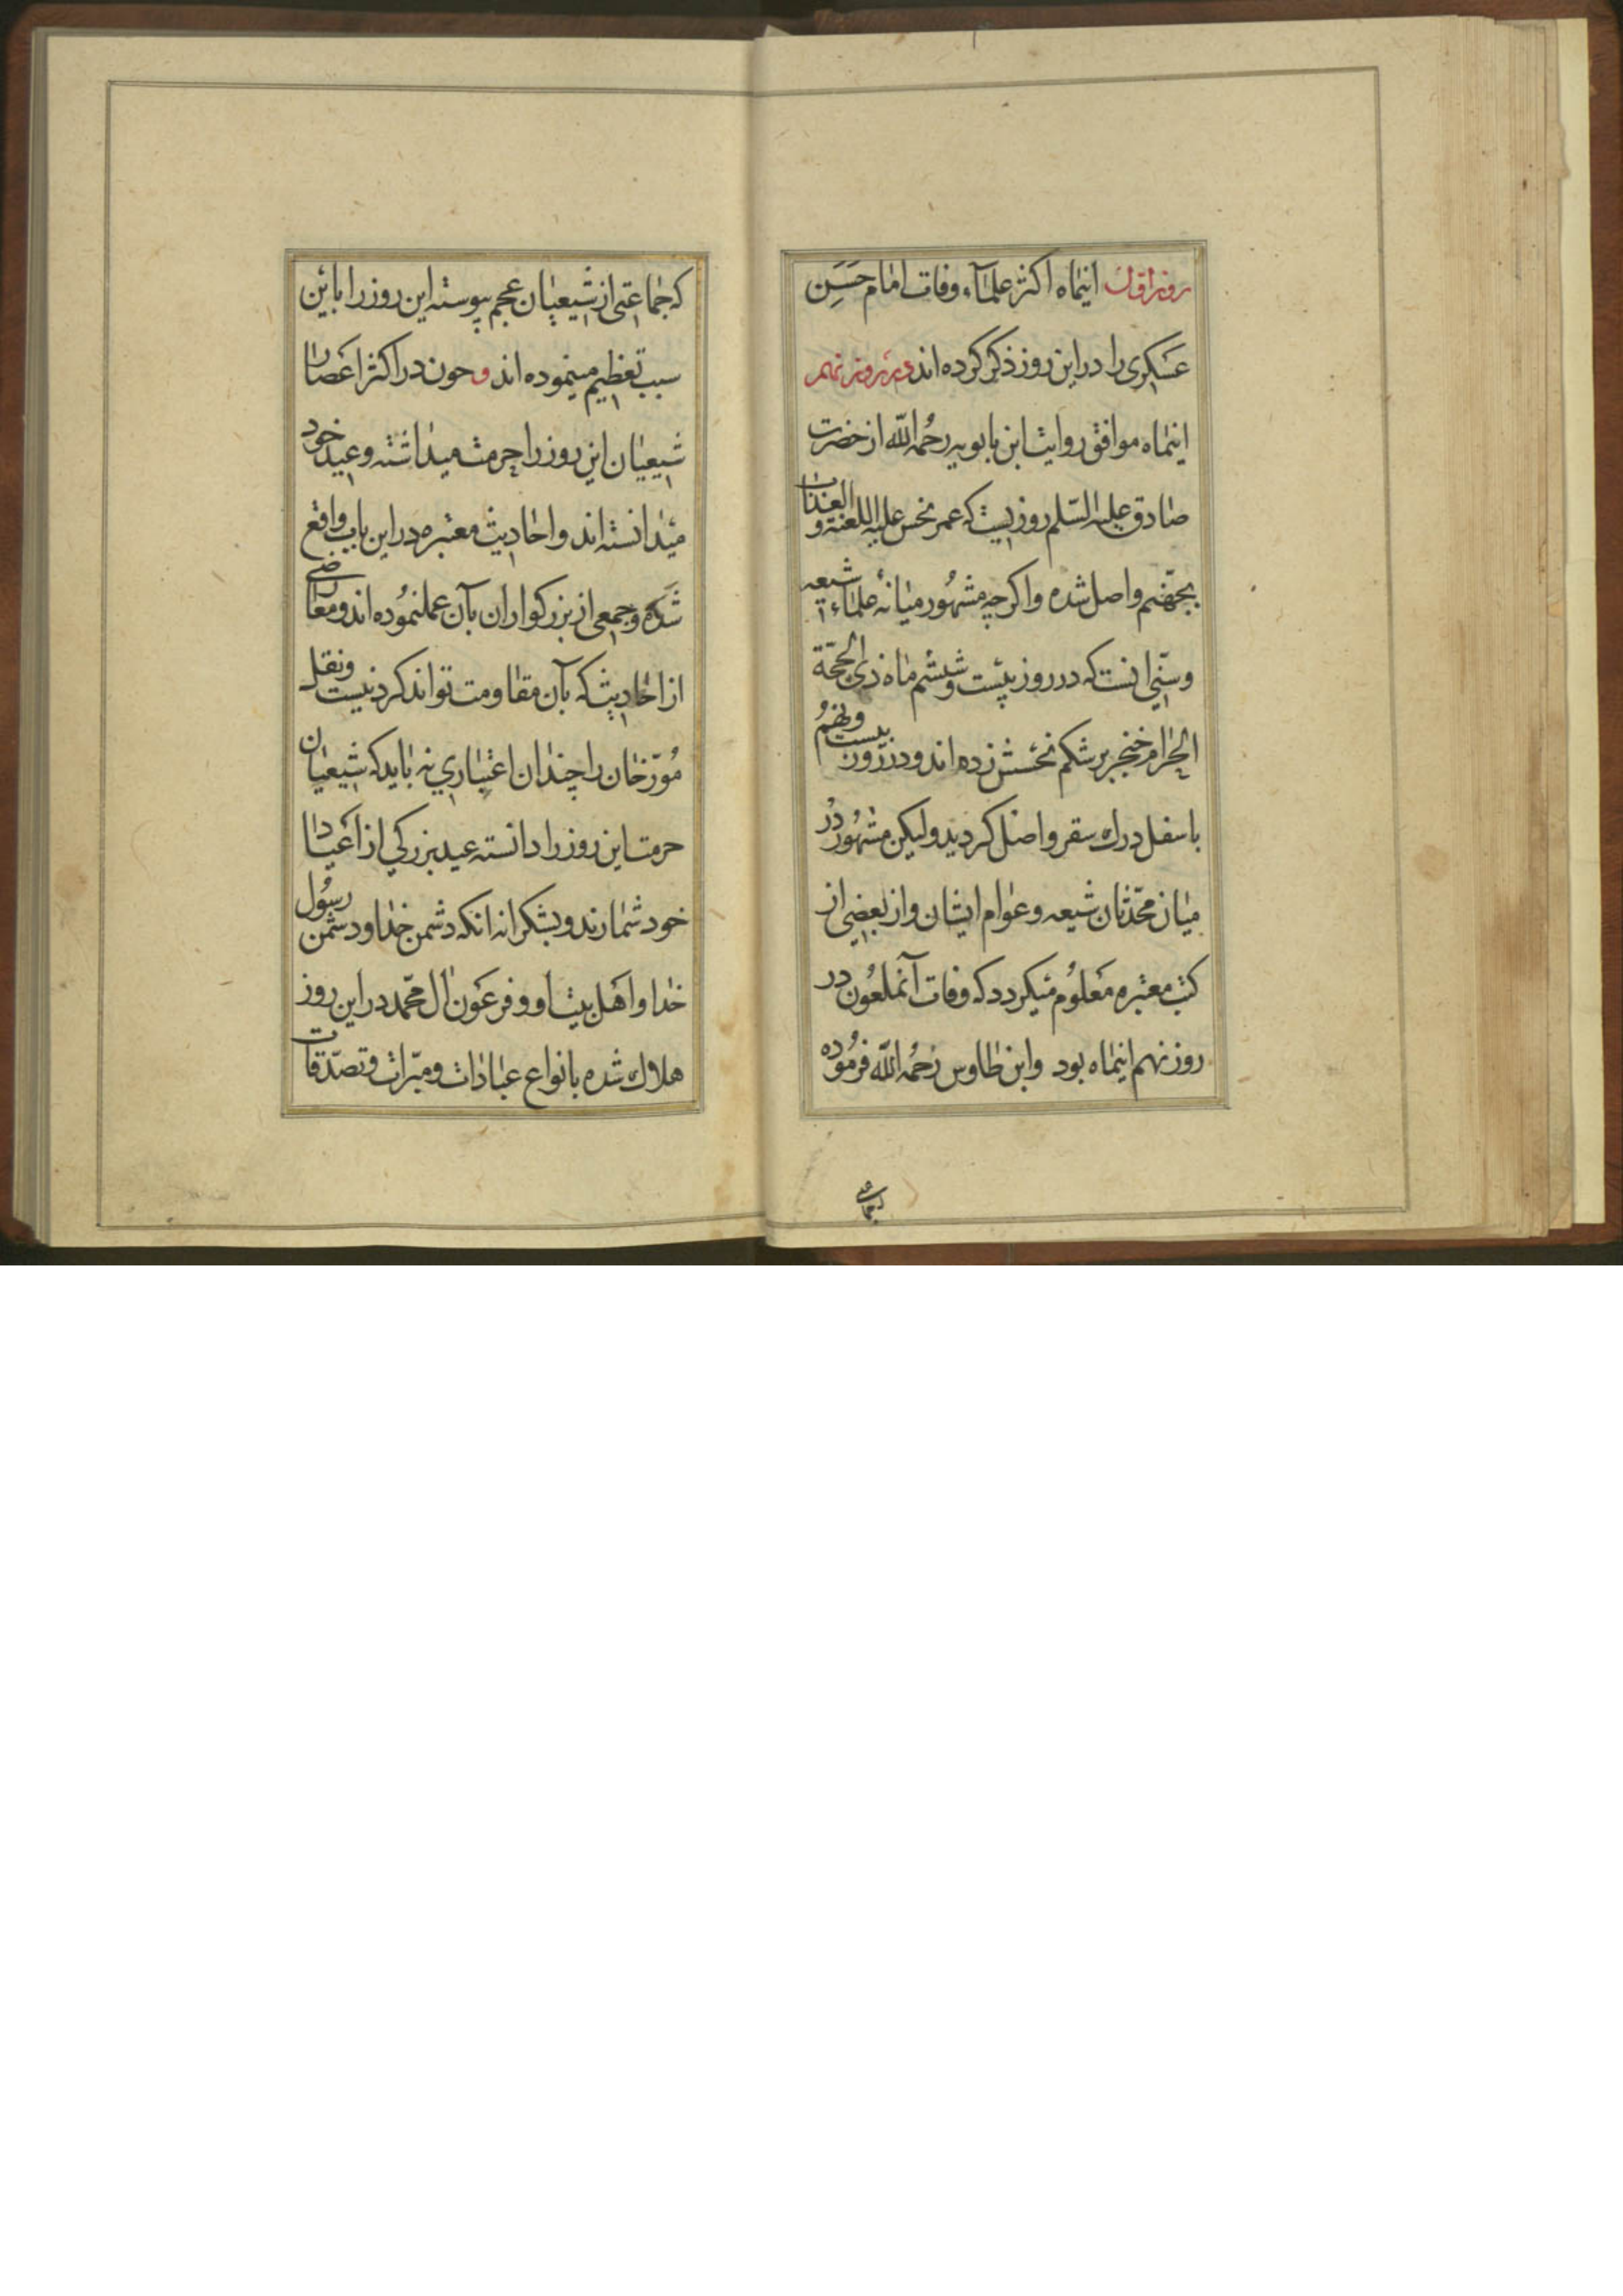 روز اول اینماه اکثر علماء وفات امام حسن
عسکری را در این روز ذکر کرده اند و در روز نهم
اینماه موافق روایت ابن بابویه رحمه الله از حضرت
صادق علیه السلم روزیست که عمر نحس علیه اللعنة و العذاب
بجهنم واصل شده واکرچه مشهور میانه علماء شیعه
وسنی انست که در روز بیست و ششم ماه ذی الحجة
الحرام خنجر بر شکم نحسش زده اند و در روز بیست و نهم
باسفل درك سقر واصل کردید ولیکن مشهور در
میان محدثان شیعه و عوام ایشان و از بعضی از
کتب معتبره معلوم میکردد که وفات آنملعون در
روز نهم اینماه بود وابن طاوس رحمه الله فرموده
که جماعتی از شیعیان عجم پیوسته این روز را باین
سبب تعظیم مینموده اند و چون در اکثر اعصار
شیعیان این روز را حرمت میداشته و عید خود
میدانسته اند و احادیث معتبره در این باب واقع
شده و جمعی از بزرکواران بآن عمل نموده اند و معارضی
از احادیث که بآن مقاومت تواند کرد نیست و نقل
مورخان را چندان اعتباری نه باید که شیعیان
حرمت این روز را دانسته عید بزرکی از اعیاد
خود شمارند و بشکرانه انکه دشمن خدا و دشمن رسول
خدا و اهل بیت او و فرعون ال محمد در این روز
هلاك شده بانواع عبادات و مبرات و تصدقات